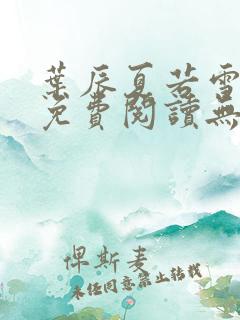 葉辰夏若雪
免費閱讀無
俾斯麦
未经同意禁止转载